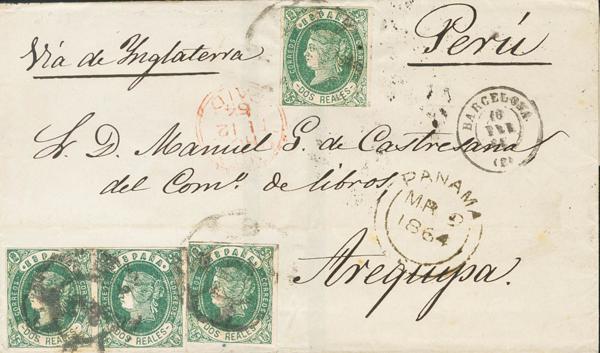 Vía de Inglaterra
Perú
ESPAÑA
CORREOS
DOS REALES
BARCELONA
16
FEB
(2)
PAID
S. D. Manuel G. de Castresana
del Comº. de libros,
PANAMA
MR 9
1864
Arequipa.
ESPAÑA
CORREOS
DOS REALES
ESPAÑA
CORREOS
DOS REALES
ESPAÑA
CORREOS
DOS REALES